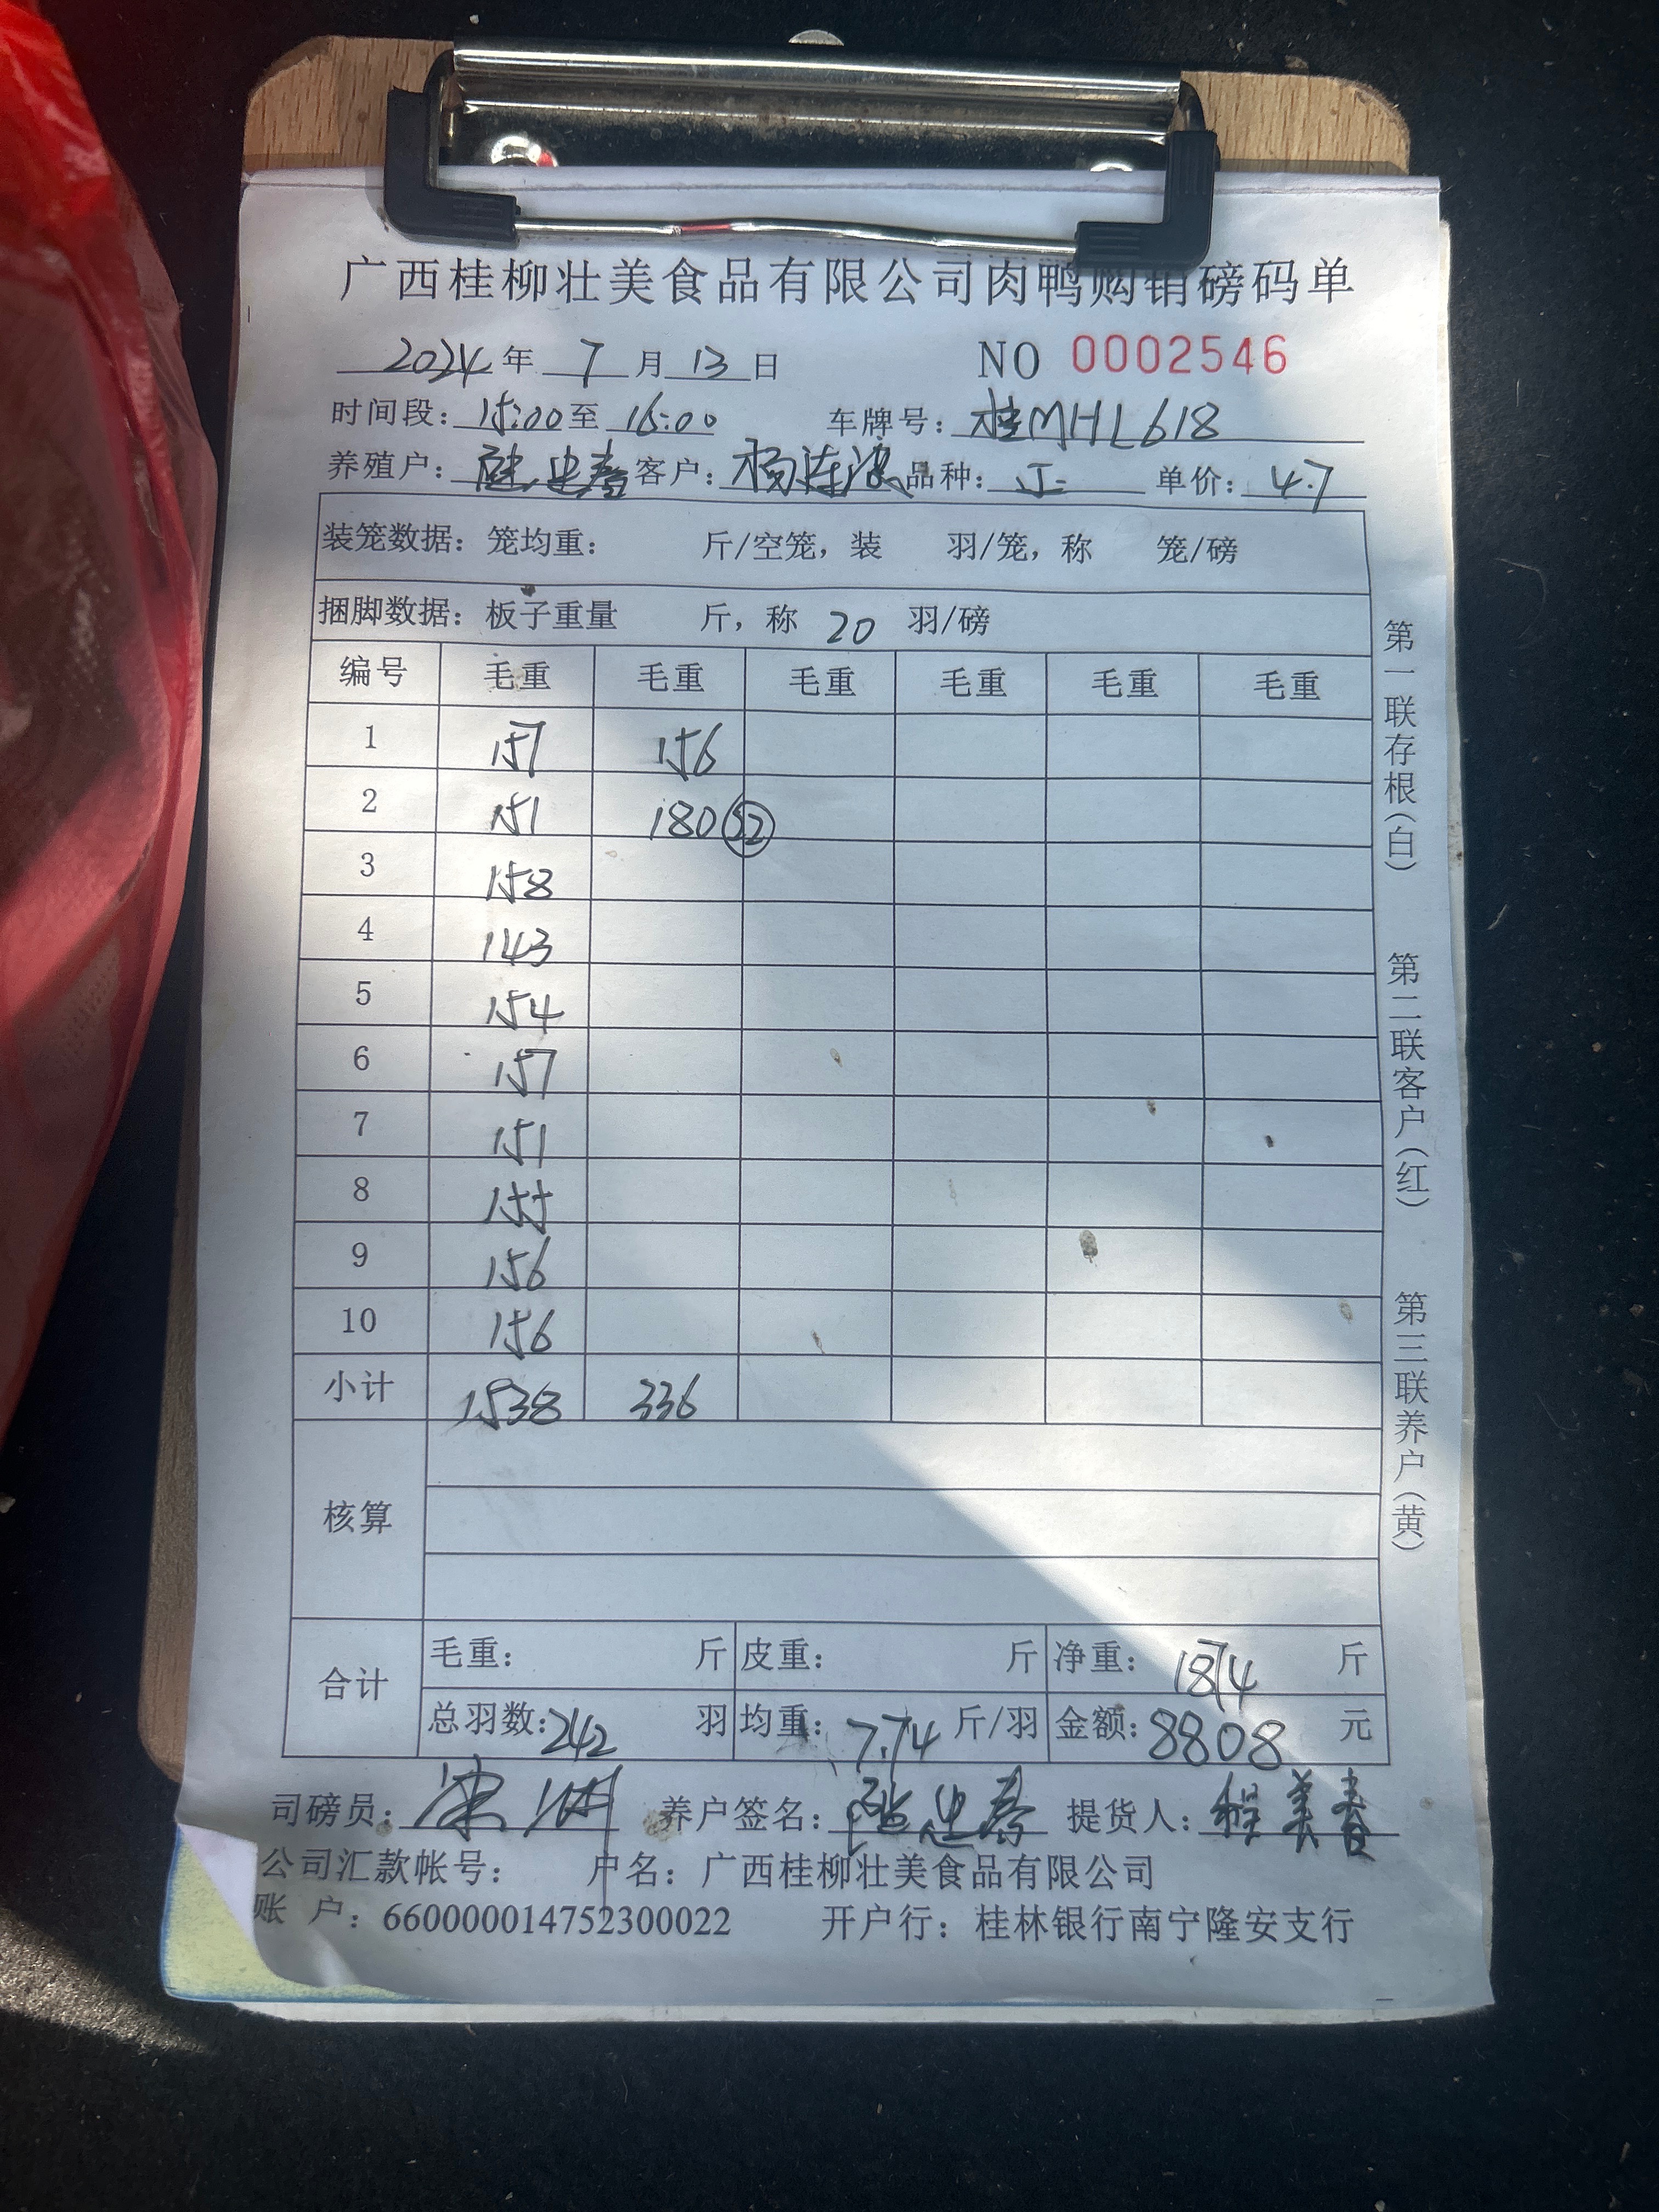 广西桂柳壮美食品有限公司肉鸭购销磅码单
2024年 7月 13日 NO 0002546
时间段: 15:00至 16:00 车牌号: 桂MHL618
养殖户: 客户: 杨连 品种: 正 单价: 4.7
装笼数据: 笼均重: 斤/空笼, 装 羽/笼, 称 笼/磅
捆脚数据: 板子重量 斤, 称 20 羽/磅
编号 毛重 毛重 毛重 毛重 毛重 毛重
1 157 156
2 151 180 52
3 158
4 143
5 154
6 157
7 151
8 155
9 156
10 156
小计 1538 336
核算
合计 毛重: 斤 皮重: 斤 净重: 1874 斤
总羽数: 242 羽 均重: 7.74 斤/羽 金额: 8808 元
司磅员: 养户签名: 提货人: 程美春
公司汇款帐号: 户名: 广西桂柳壮美食品有限公司
账 户: 660000014752300022 开户行: 桂林银行南宁隆安支行
第一联存根(白) 第二联客户(红) 第三联养户(黄)